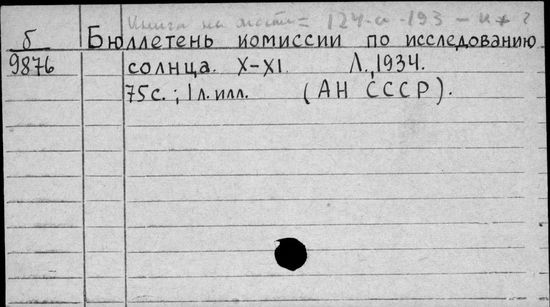 Книга на месте = 124-а-193-
б Бюллетень комиссии по исследованию
9876 солнца. X-XI Л., 1934.
75с.; 1 л. илл. (АН СССР).